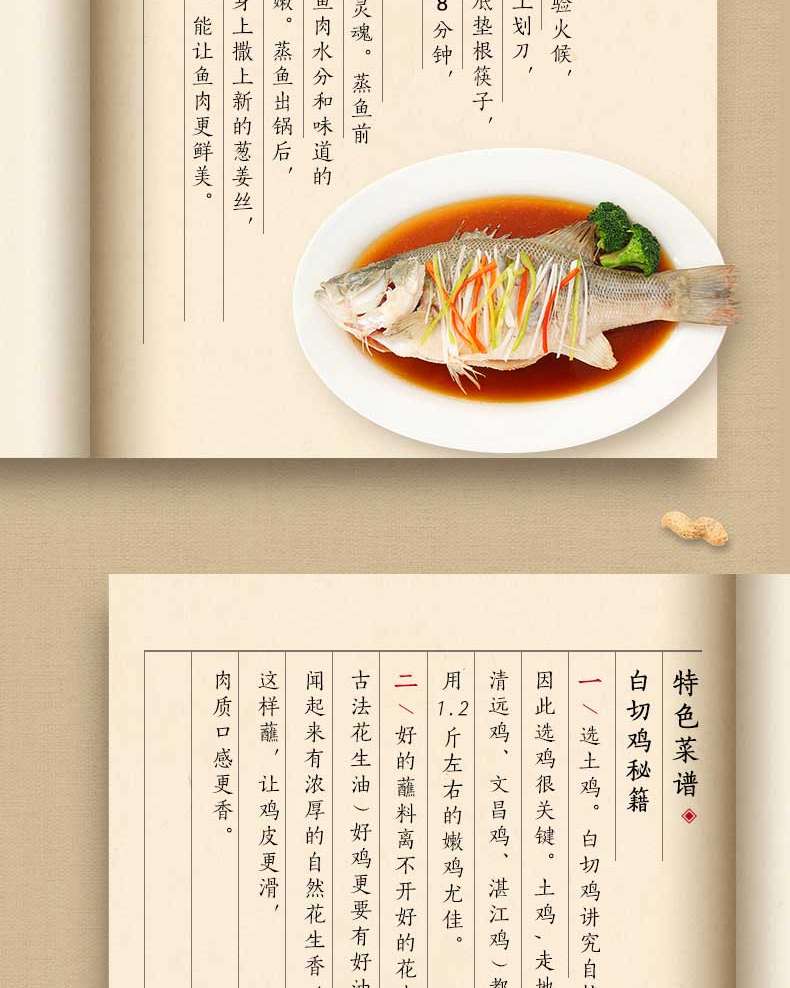 验火候，
上划刀，
底垫根筷子，
8分钟，
灵魂。蒸鱼前
鱼肉水分和味道的
嫩。蒸鱼出锅后，
身上撒上新的葱姜丝，
能让鱼肉更鲜美。
特色菜谱
白切鸡秘籍
一\选土鸡。白切鸡讲究自
因此选鸡很关键。土鸡、走地
清远鸡、文昌鸡、湛江鸡）都
用1.2斤左右的嫩鸡尤佳。
二\好的蘸料离不开好的花
古法花生油）好鸡更要有好油
闻起来有浓厚的自然花生香，
这样蘸，让鸡皮更滑，
肉质口感更香。